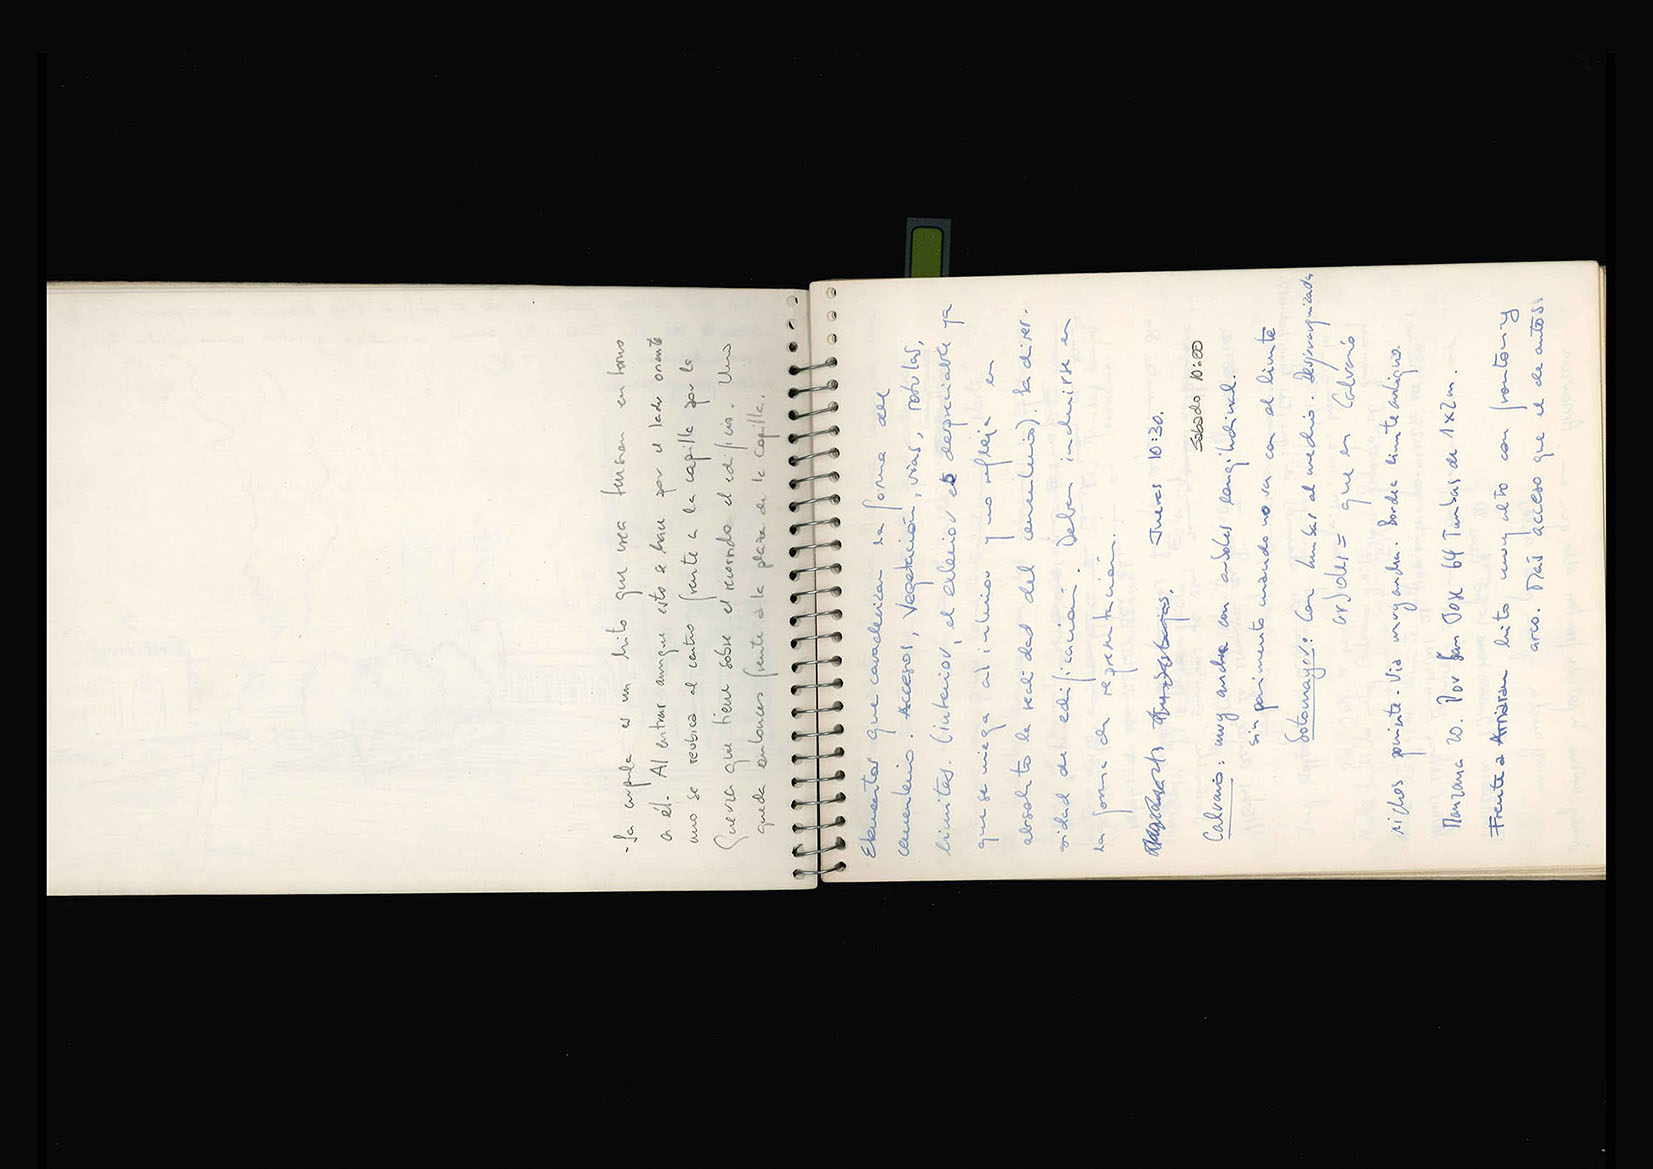 - La cupula es un hito que crea tension en torno
a él. Al entrar aunque esto se hace por el lado oriente
uno se reubica al centro frente a la capilla por la
fuerza que tiene sobre el recorrido el edificio. Uno
queda entonces frente a la plaza de la Capilla.
Elementos que caracterizan la forma del
cementerio. Accesos, Vegetación, vias, rotulas,
limites. (interior, el exterior es despreciable ya
que se niega al interior y no refleja en
absoluto la realidad del cementerio). la diver-
sidad de edificacion. Deben incluirse en
la forma de representacion.
Jueves 10:30.
Sabado 10:00
Calvario: muy ancha con arboles longitudinal.
sin pavimento cuando no va con el limite
Sotomayor: Con tumbas al medio. Desjerarquizada
arboles = que en Calvario
nichos poniente. Via muy ancha. Bordea limite antiguo.
Manzana 20. Por San Jose 64 Tumbas de 1x2m.
Frente a hito muy alto con fronton y
arco. Mas acceso que el de autos!